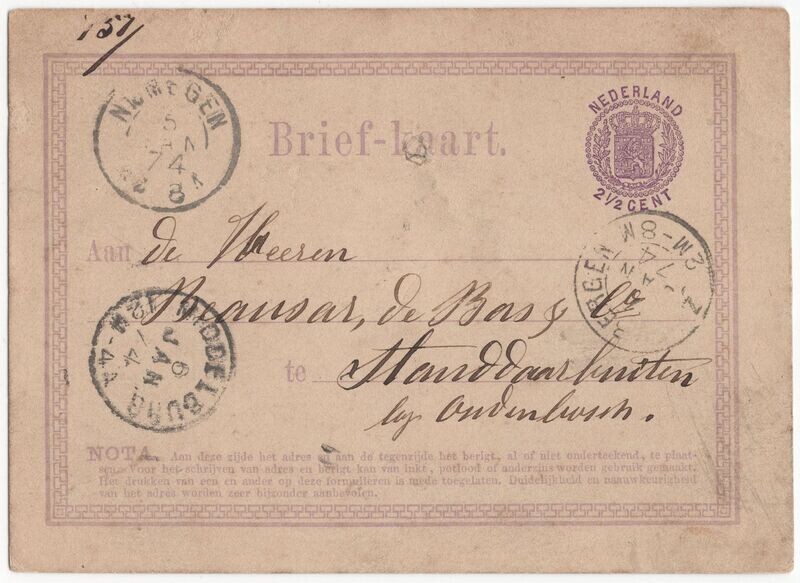 157
NIJMEGEN
5
JAN
74
8
Brief-kaart.
NEDERLAND
2½ CENT
Aan de Heeren
de Bas & Co
te Standdaarbuiten
by Oudenbosch.
BERGEN
JAN
74
8M
2M
MIDDELBURG
6
JAN
74
12M-4
NOTA. Aan deze zijde het adres en aan de tegenzijde het berigt, al of niet onderteekend, te plaat-
sen. Voor het schrijven van adres en berigt kan van inkt, potlood of anderzins worden gebruik gemaakt.
Het drukken van een en ander op deze formulieren is mede toegelaten. Duidelijkheid en naauwkeurigheid
van het adres worden zeer bijzonder aanbevolen.